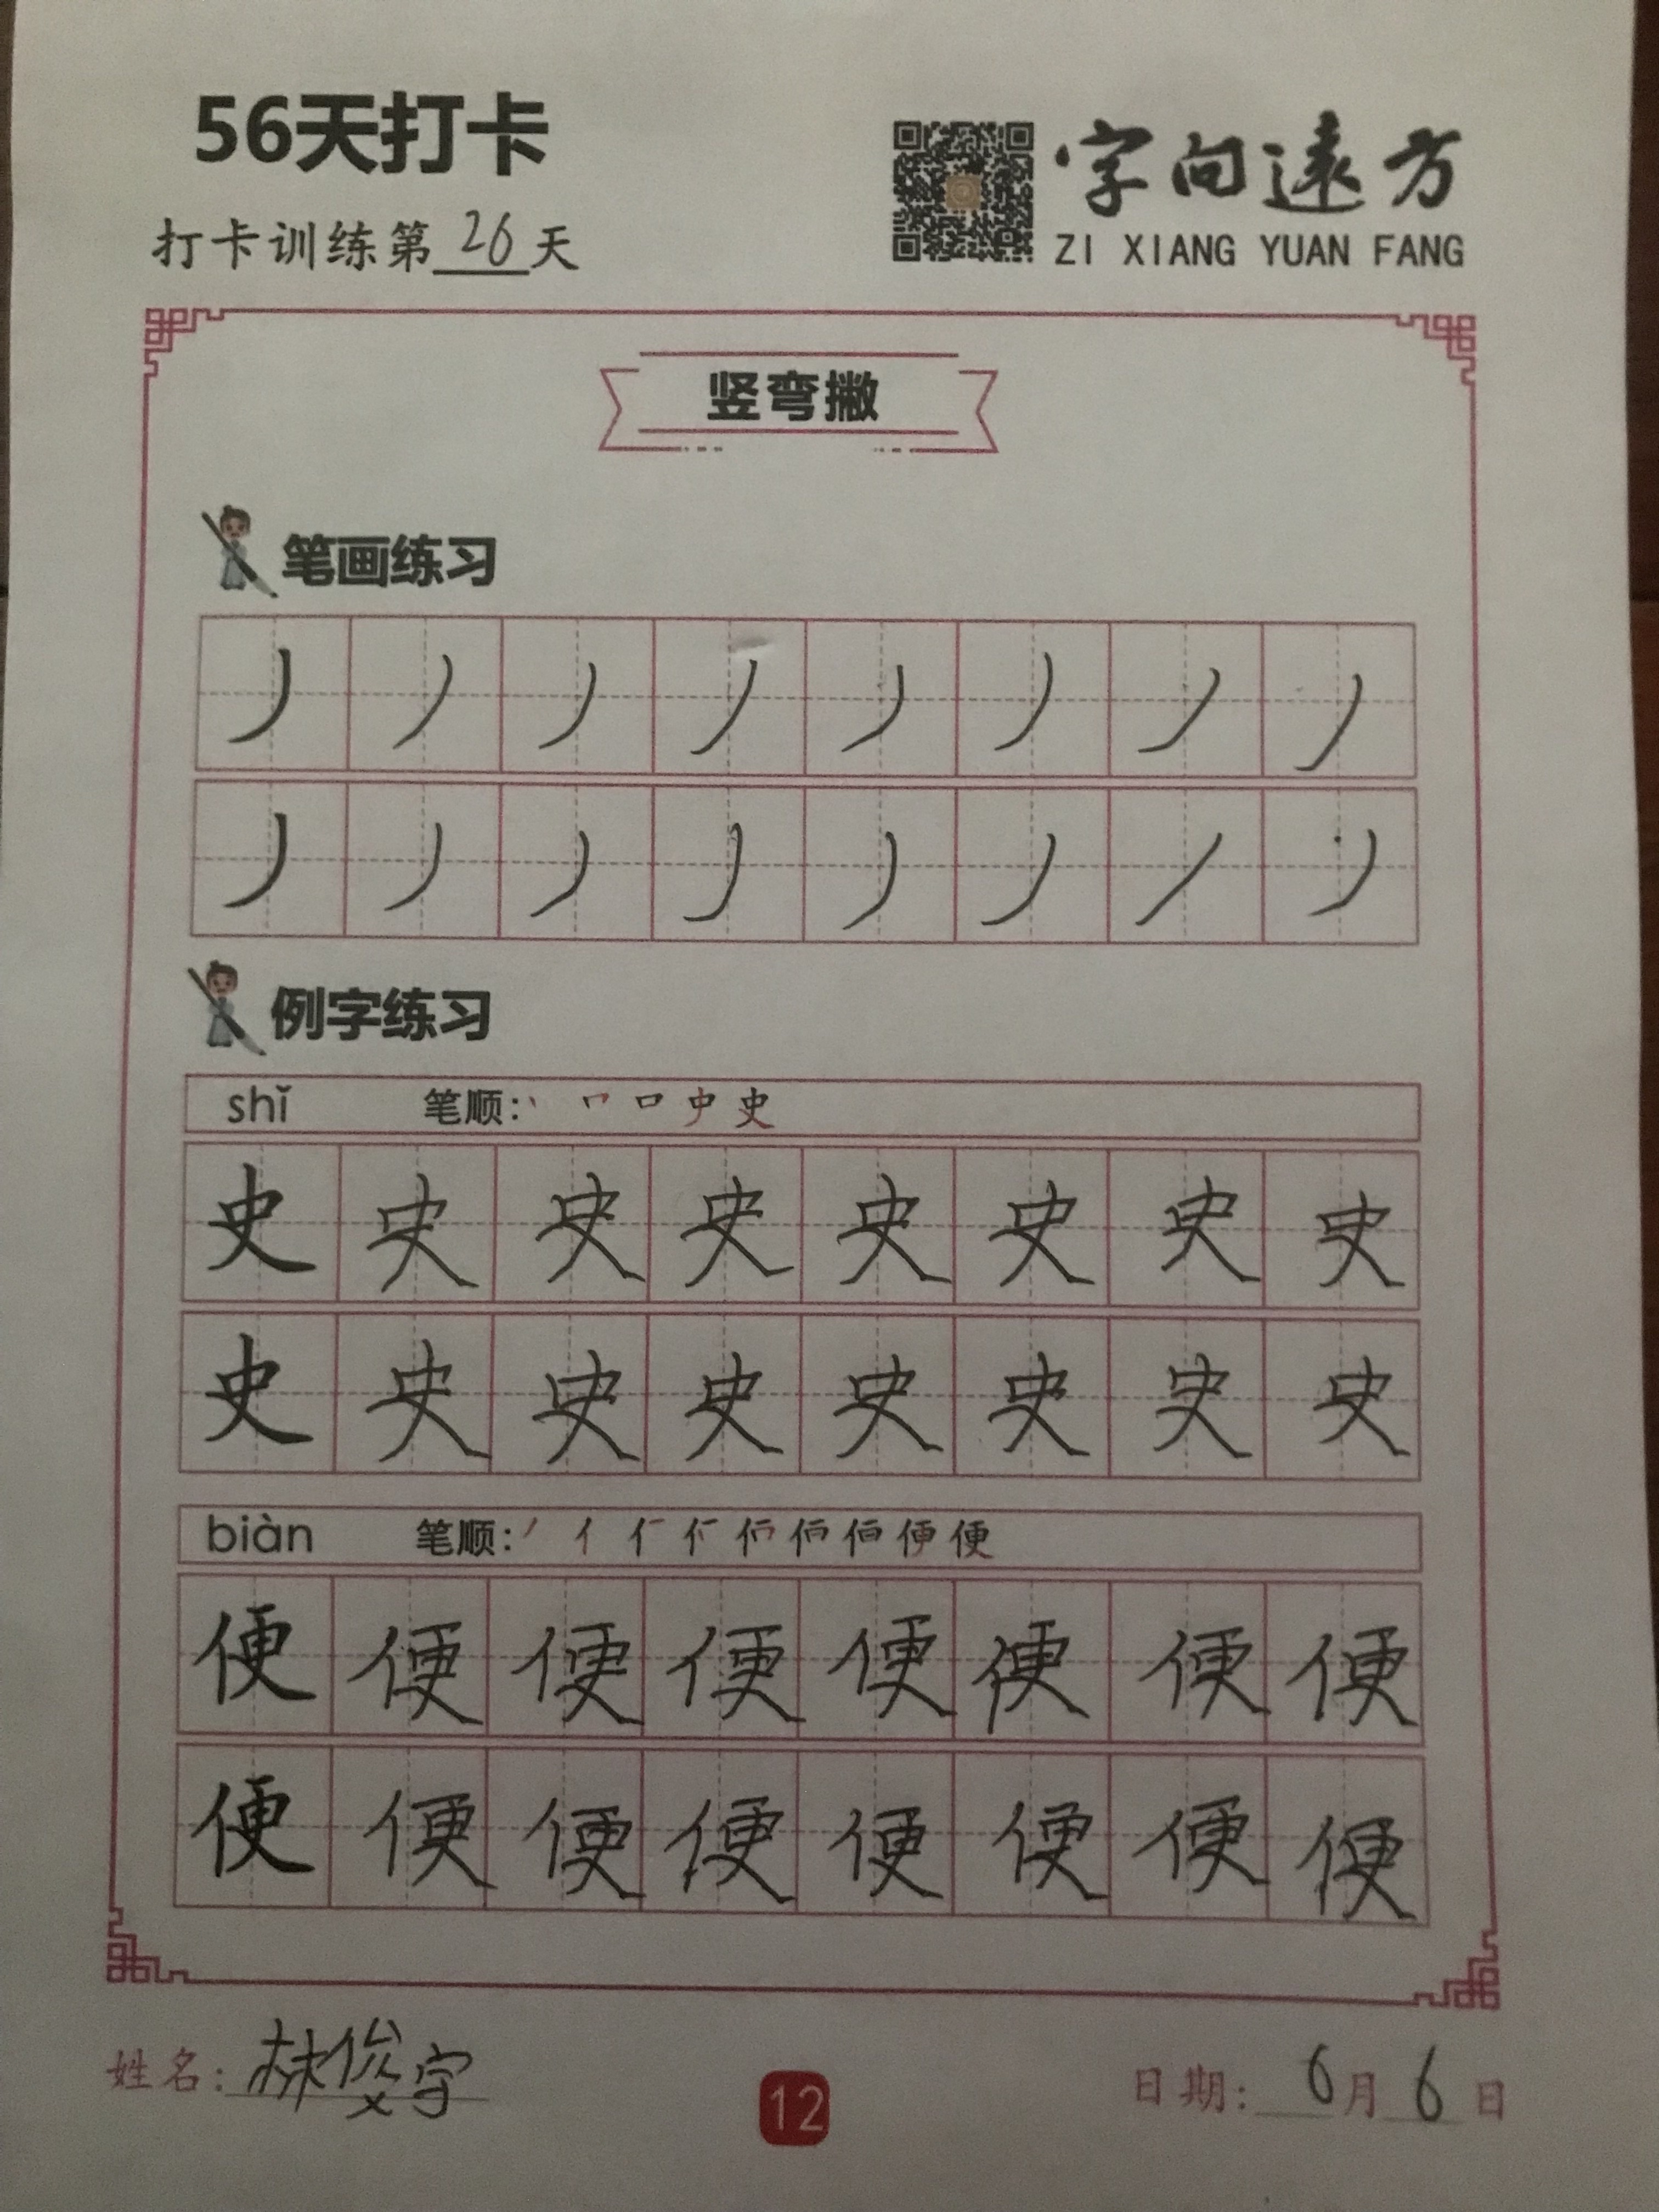 56天打卡
打卡训练第26天
字向遠方
ZI XIANG YUAN FANG
竖弯撇
笔画练习
丿 丿 丿 丿 丿 丿 丿 丿
丿 丿 丿 丿 丿 丿 丿 丿
例字练习
shǐ 笔顺: 丨 𠃍 口 史 史
史 史 史 史 史 史 史 史
史 史 史 史 史 史 史 史
biàn 笔顺: 丿 亻 便 便
便 便 便 便 便 便 便 便
便 便 便 便 便 便 便 便
姓名: 林俊字
12
日期: 6月6日